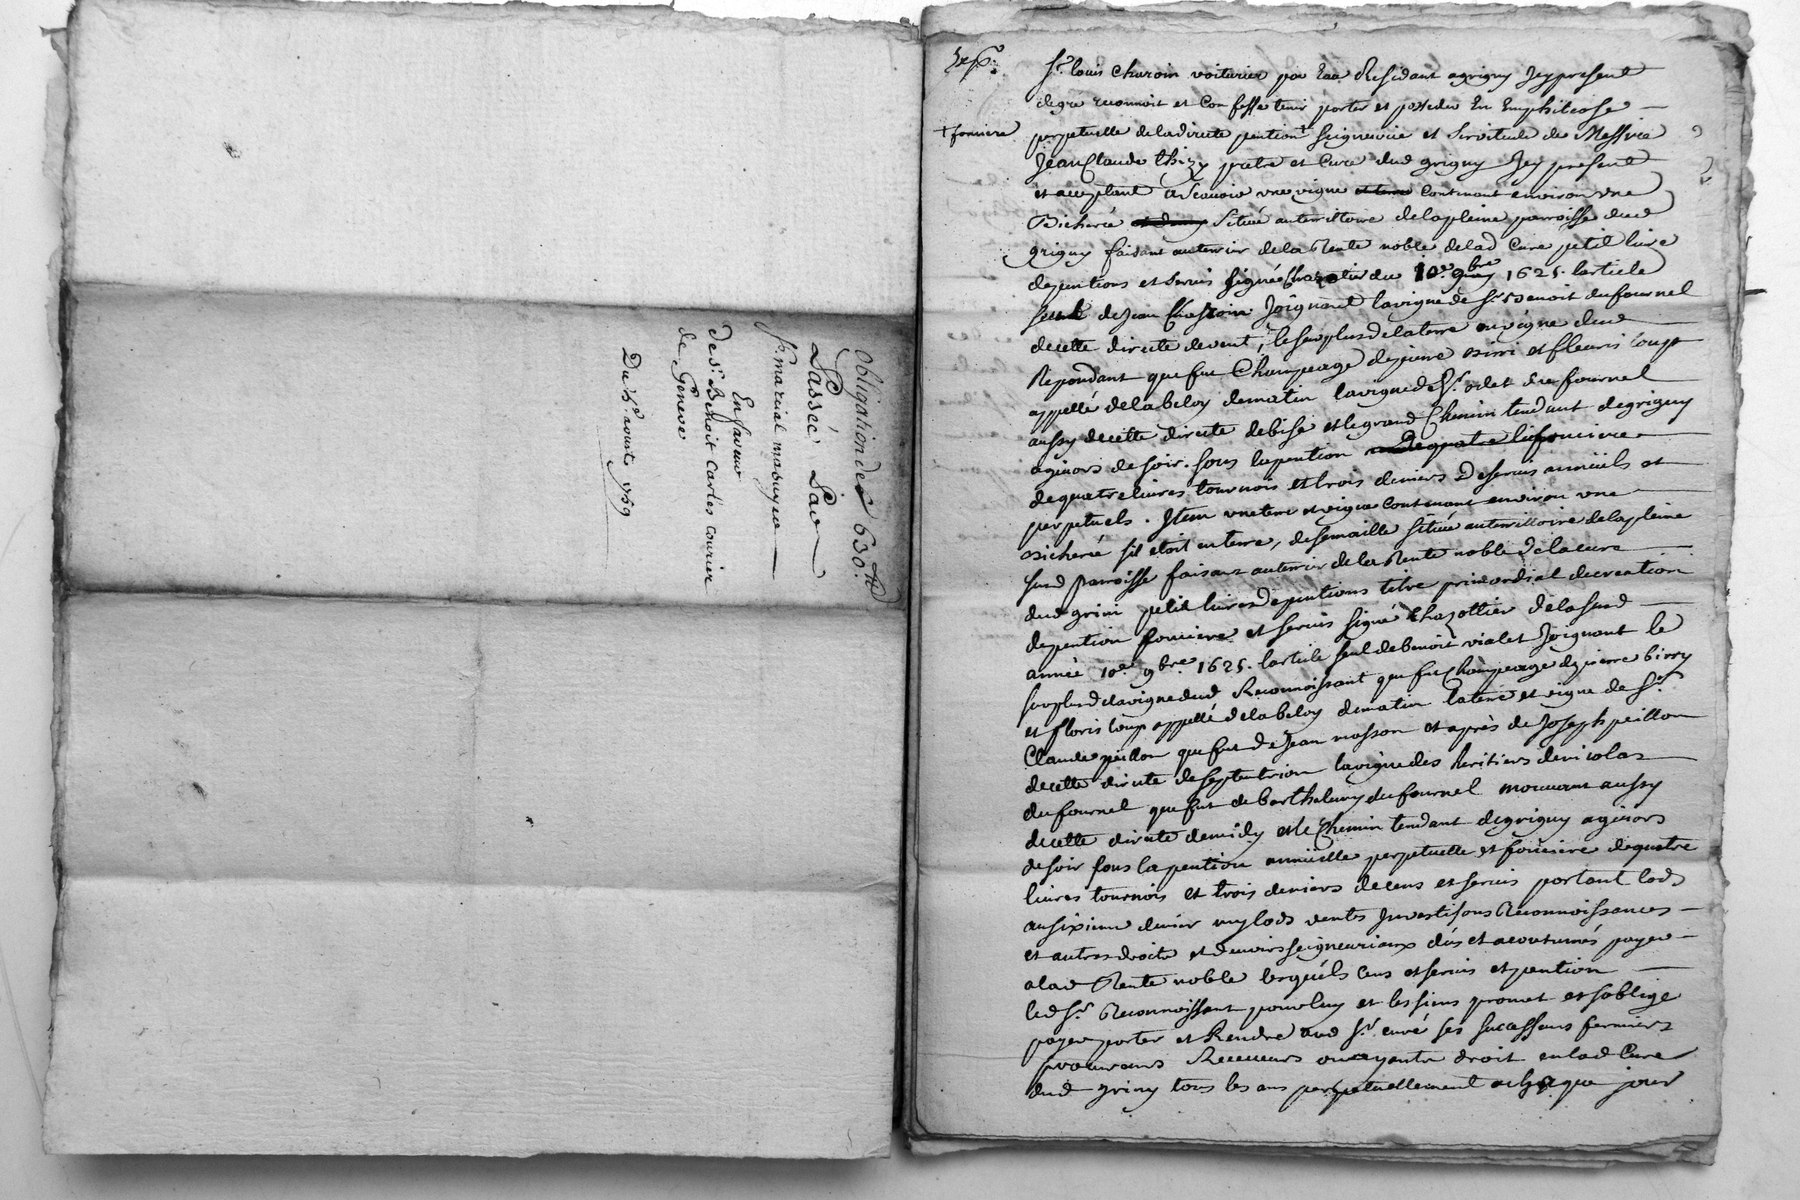 Obligation de 630.ᵗᵗ
Passée Par
Sʳ. martial
En faveur
De sʳ. Benoit Carlés courier
de Geneve
Du aoust 1759
Sʳ. louis Charoin voiturier par Eau Residant a grigny Icy present
de gre reconnoit et Confesse tenir porter et posseder En Emphiteose
+ fonciere
perpetuelle de la directe pention+ seigneurie et servitude de Messire
Jean Claude thizy pretre et Curé dud grigny Icy present
et acceptant a Scavoir une vigne et terre contenant environ une
Bicherée située au territoire de la pleine parroisse dud
grigny faisant au terrier de la Rente noble de lad Cure petit livre
de pentions et servis signé Chazotier du 10ᵉ. 9bre 1625. l'article
seul de Jean Joignant la vigne de Sʳ. Benoit du fournel
de cette directe de vent, le surplus de la terre ou vigne dud
Repondant que fut Champeage de pierre birri et fleuris loup
appellé de la beloy de matin la vigne de Sʳ. odet du fournel
aussy de cette directe de bise et le grand Chemin tendant de grigny
a givors de soir. sous la pention de quatre li fonciere
de quatre livres tournois et trois deniers de servis annuels et
perpetuels. Item une terre et vigne contenant environ une
bicherée s'il etoit en terre, de semaille située au territoire de la pleine
susd parroisse faisant au terrier de la Rente noble de la cure
dud grini petit livre de pentions titre primordial de creation
de pention fonciere et servis signé Chazottier de la susd
année 10ᵉ. 9bre. 1625. l'article seul de benoit vialet Joignant le
surplus de la vigne dud Reconnoissant que fut Champeage de pierre birry
et floris loup appellé de la beloy de matin la terre et vigne de Sʳ.
Claude peillon que fut de Jean masson et après de Joseph peillon
de cette directe de septentrion la vigne des heritiers de nicolas
du fournel que fut de barthelemy du fournel mouvant aussy
de cette directe de midy et le Chemin tendant de grigny a givors
de soir sous la pention annuelle perpetuelle et fonciere de quatre
livres tournois et trois deniers de cens et servis portant lods
au sixieme denier mylods ventes Investisons Reconnoissances
et autres droits et devoirs seigneuriaux dûs et acoutumés payer
a lad Rente noble lesquels cens et servis et pention
led Sʳ. Reconnoissant pour luy et les siens promet et s'oblige
payer porter et Rendre aud Sʳ. curé ses successeurs fermiers
procureurs Receveurs ou ayants droit en lad Cure
dud griny tous les ans perpetuellement a chaque jour